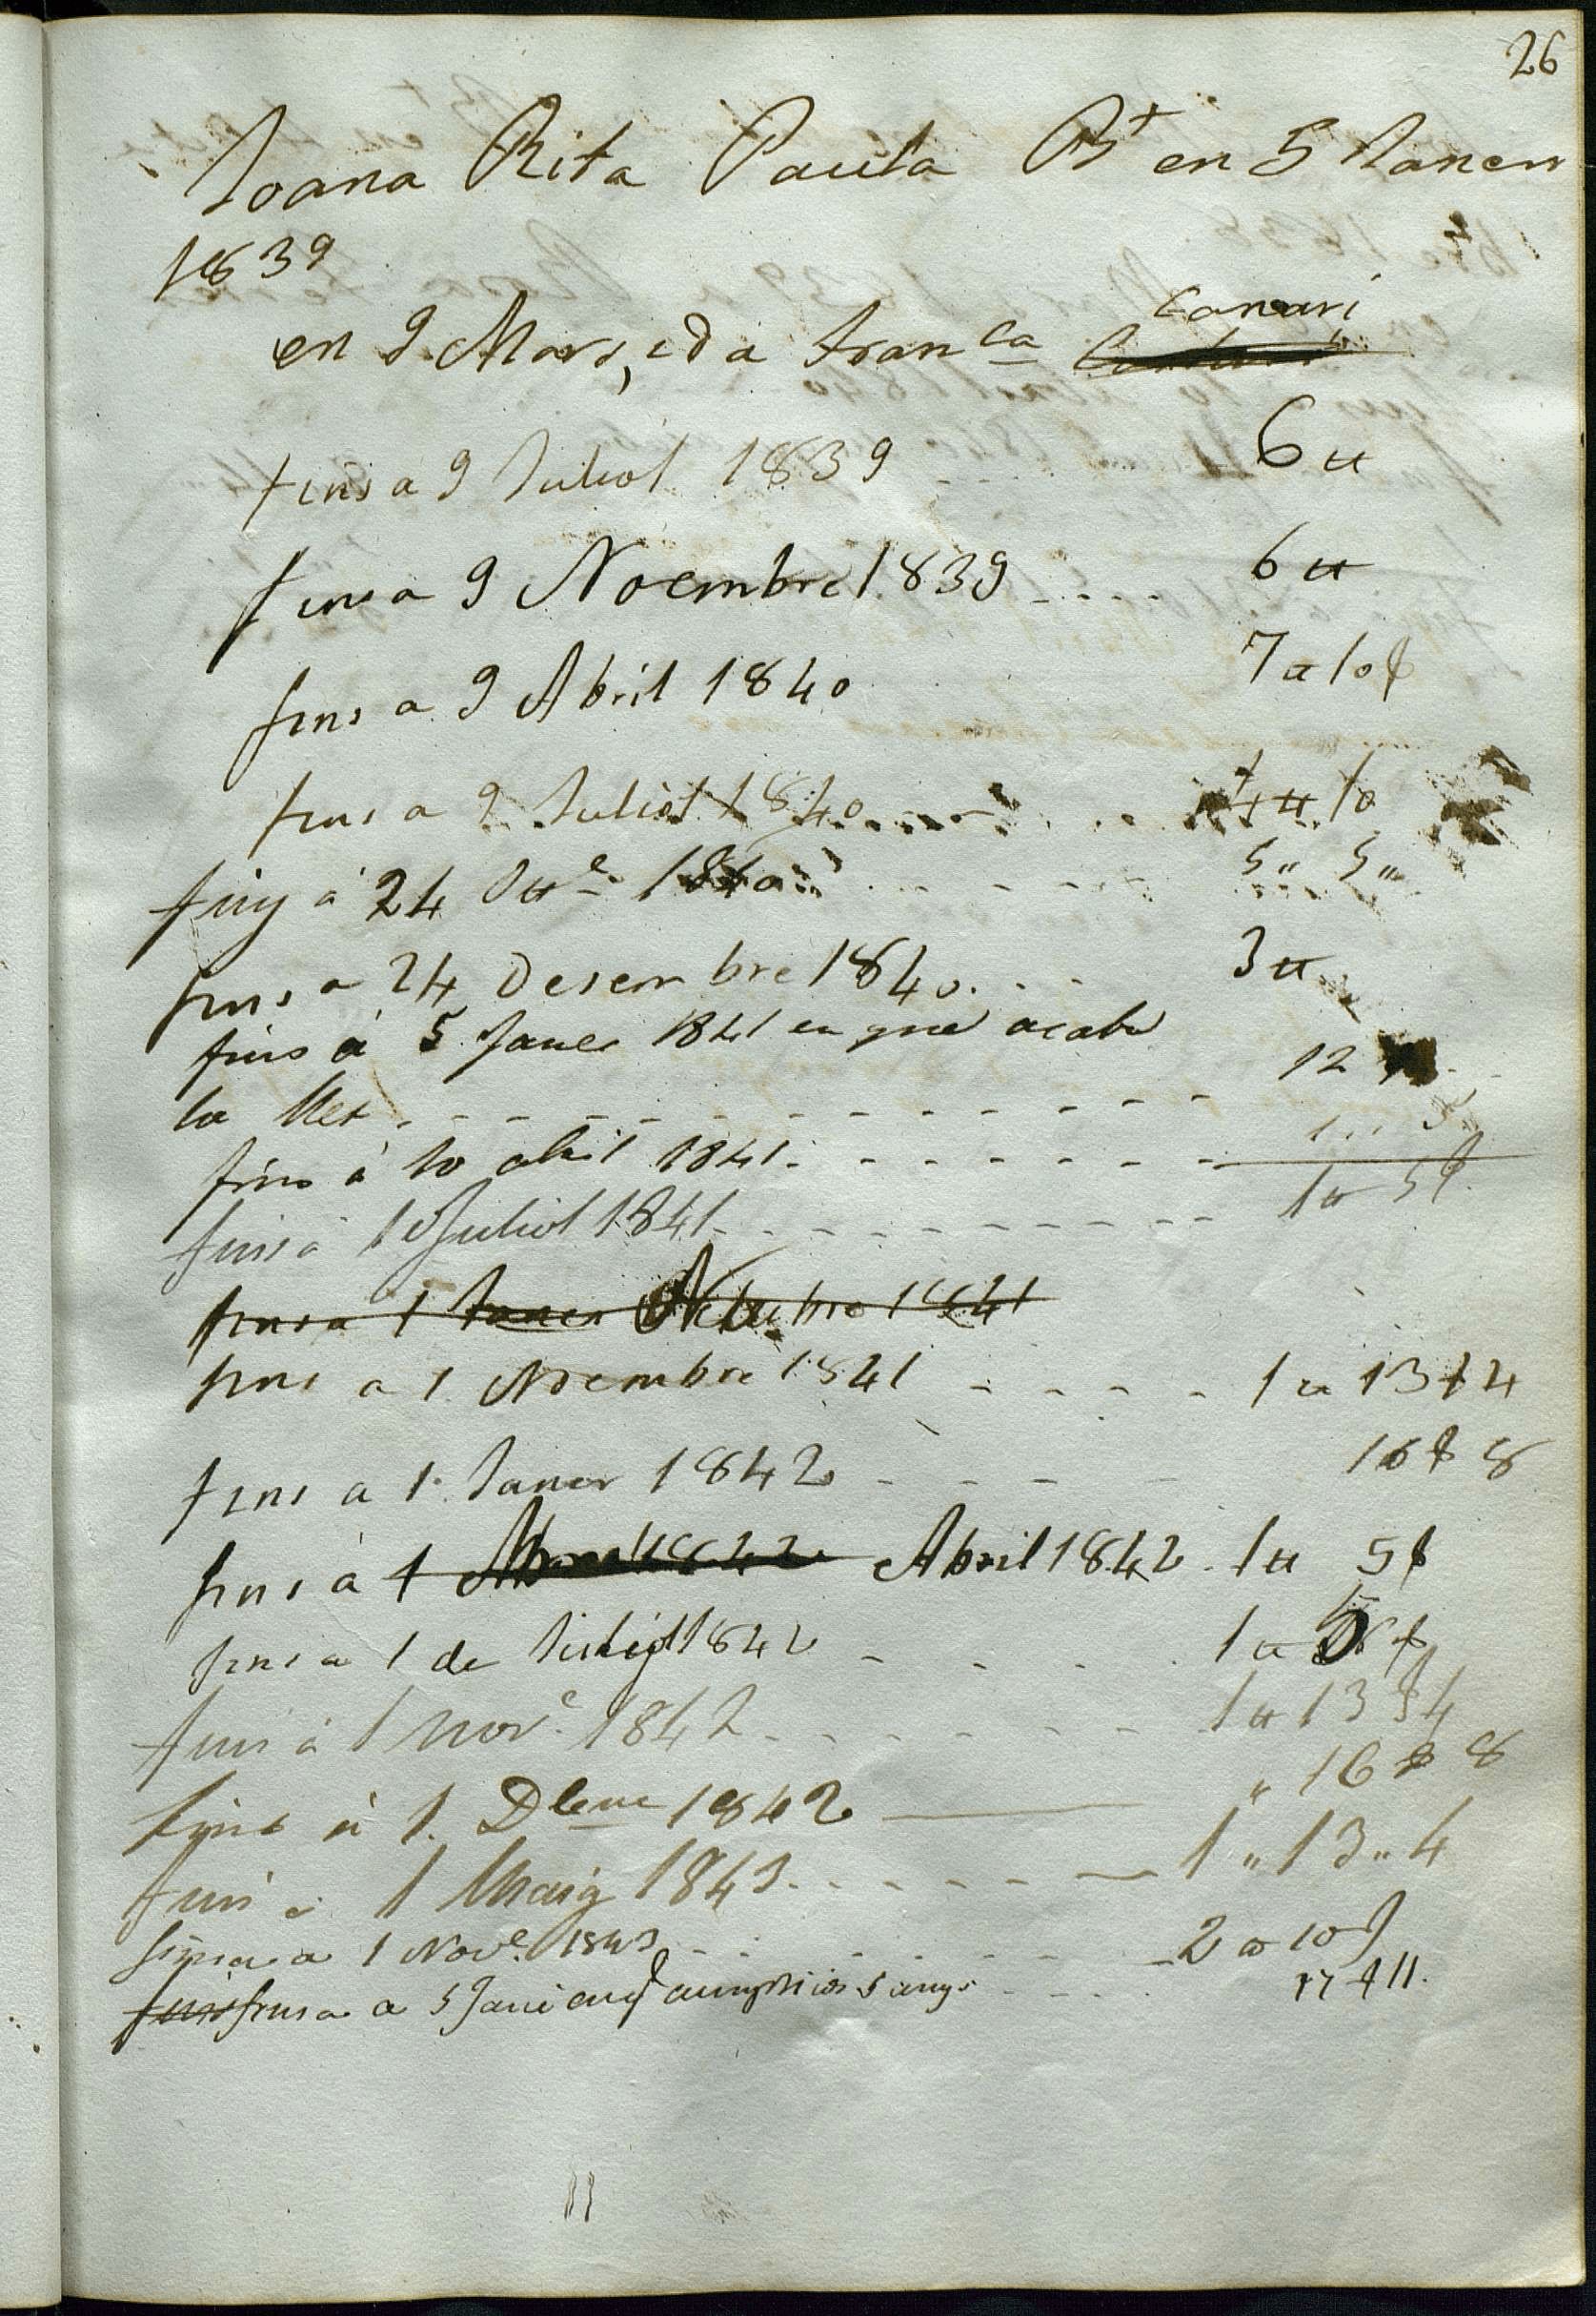 26
Joana Rita Paula Bt en 5 Janer
1839
en 9 Mars, e d a Franca Canari
fins a 9 Juliol 1839 6 tt
fins a 9 Noembre 1839 .... 6 tt
fins a 9 Abril 1840 7 tt 10 s
fins a 9 Juliol 1840 ........ 4 tt 10
fins á 24 1840 ..... 5 " 5 "
fins a 24 Desembre 1840 ... 3 tt
fins á 5 Janer 1841 en que acaba
la llet . - - - - - - - - - - - 12
fins á 10 abril 1841. - - - - - - - 1 " 5
fins á 10 Juliol 1841 - - - - - - - - - 1 tt 5 s
fins a 1 Janer 1841
fins a 1 Noembre 1841 - - - - 1 tt 13 s 4
fins a 1 Janer 1842 - - - 16 s 8
fins á 1 Abril 1842 1 tt 5 s
fins a 1 de Juliol 1842 - - - 1 tt 5 s
fins á 1 Nove 1842 - - - - - - 1 tt 13 s 4
fins á 1. 1842 " 16 s 8
fins á 1 Maig 1843 - - - - - - 1 " 13 " 4
fins a 1 Nove 1843 - - - - - - 2 tt 10 s
fins fins a 5 Jane cumplí los 5 anys - - - 17 s 11.